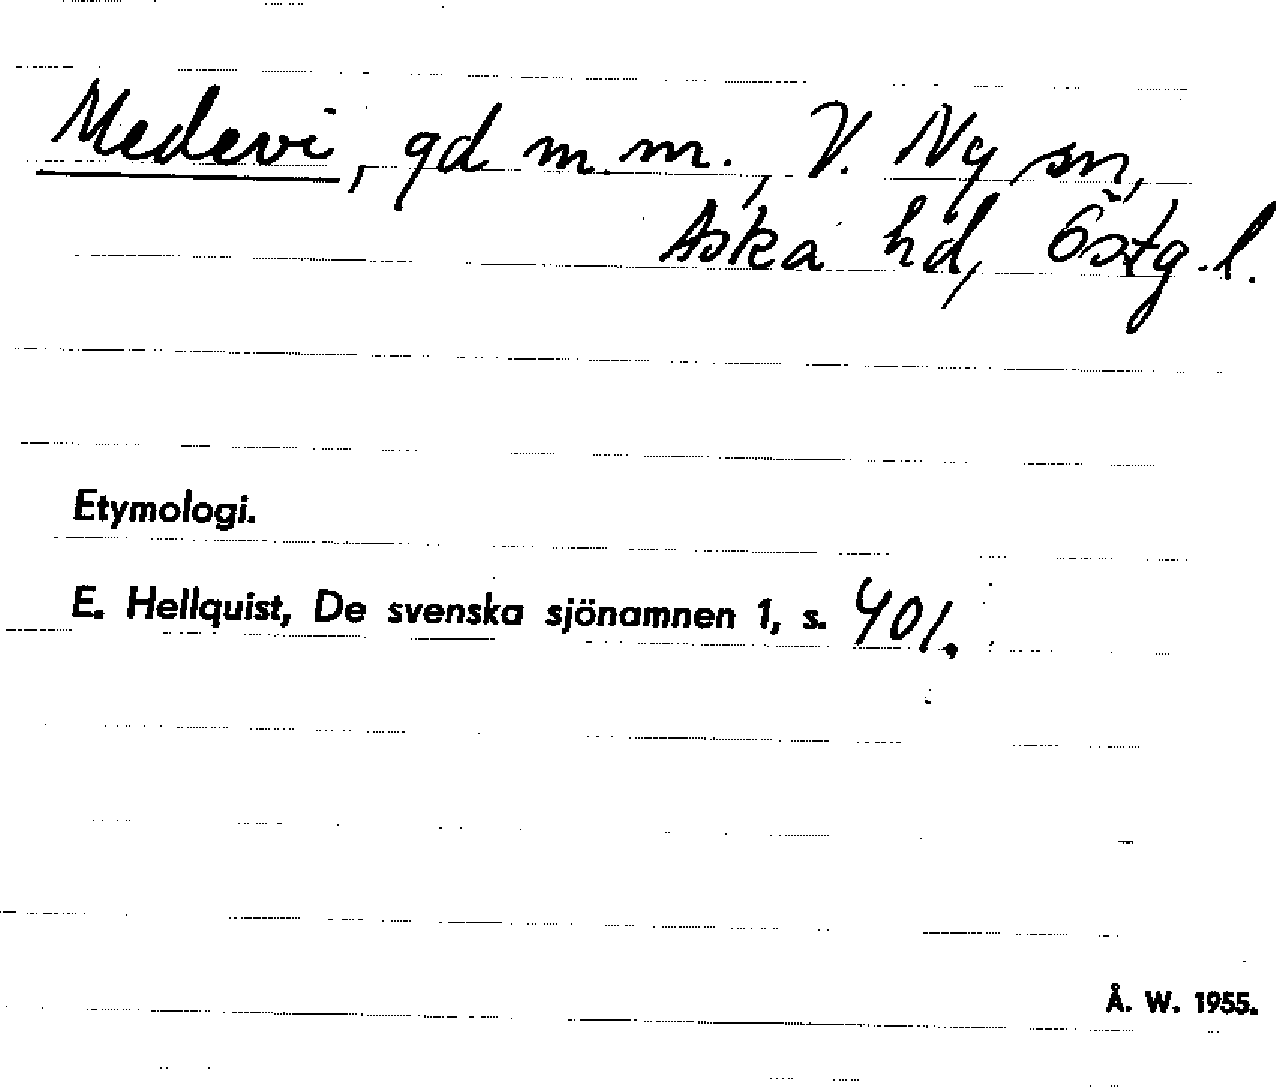 Medevi, gd m.m., V. Ny sn,
Aska hd, Östg. l.
Etymologi.
E. Hellquist, De svenska sjönamnen 1, s. 401.
Å. W. 1955.